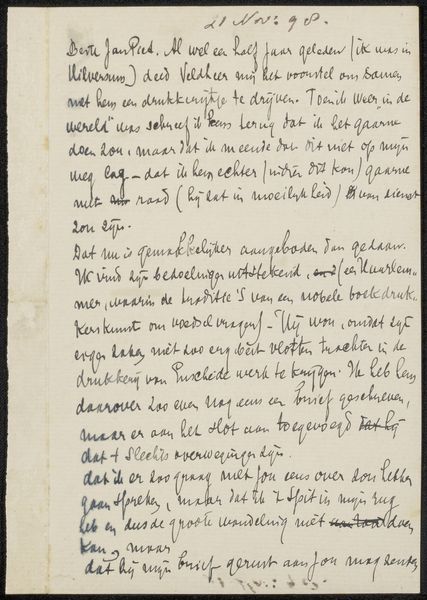 21 Nov: 98.
Beste Jan Piet. Al wel een half jaar geleden (ik was in
Hilversum) deed Veldheer mij het voorstel om samen
met hem een drukkerijtje te drijven. Toen ik weer "in de
wereld" was schreef ik hem terug dat ik het gaarne
doen zou, maar dat ik meende dat dit niet op mijn
weg lag – dat ik hem echter (indien dit kon) gaarne
met raad (hij dat in moeilijkheid) van dienst
zou zijn.
Dat nu is gemakkelijker aangeboden dan gedaan.
Ik vind zijn bedoelingen uitstekend, (een Haarlem-
mer, waarin de traditie's van een nobele boekdruk-
kerskunst om voedsel vragen) – Hij wou, omdat zijn
eigen zaken niet zoo erg best vlotten trachten in de
drukkerij van Enschede werk te krijgen. Ik heb hem
daarover zoo even nog eens een brief geschreven,
maar er aan het slot aan toegevoegd dat hij
dat 't slechts overwegingen zijn.
dat ik er zoo graag met jou eens over zou hebben
gaan spreken, maar dat ik 't spit in mijn rug
heb en dus de groote wandeling niet doen
kan, maar
dat hij mijn brief gerust aan jou mag zenden